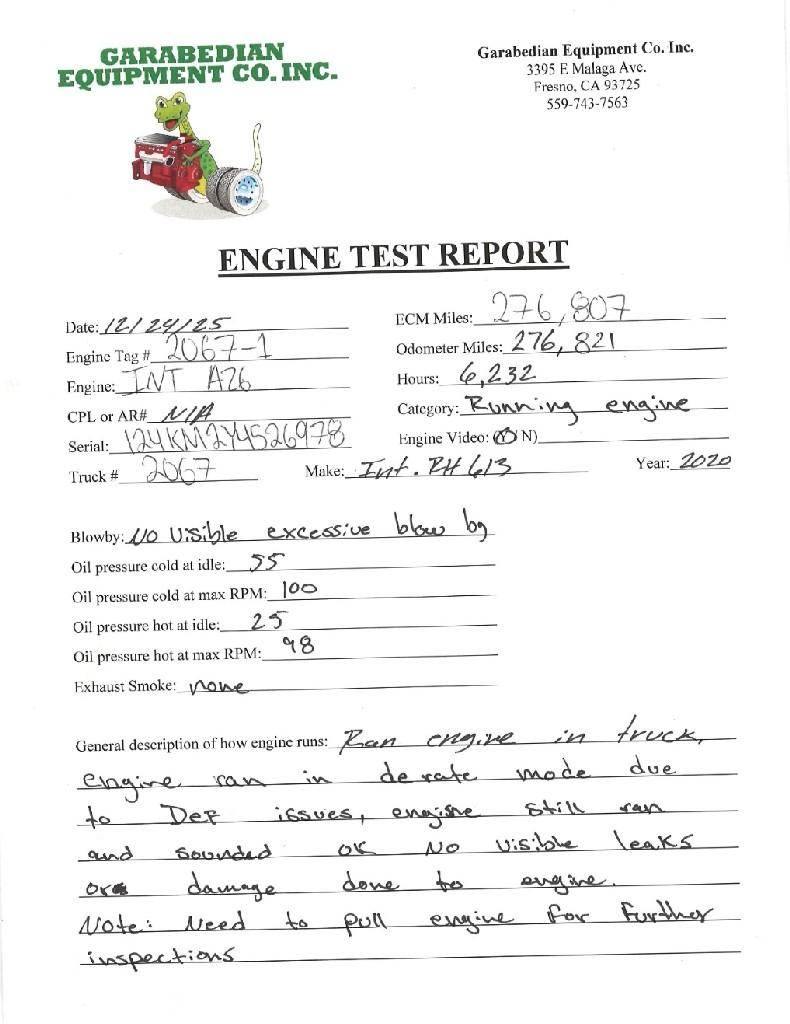 GARABEDIAN
EQUIPMENT CO. INC.
Garabedian Equipment Co. Inc.
3395 E Malaga Ave.
Fresno, CA 93725
559-743-7563
ENGINE TEST REPORT
Date: 12/24/25
ECM Miles: 276,807
Engine Tag # 2067-1
Odometer Miles: 276,821
Engine: INT A26
Hours: 6,232
CPL or AR# N/A
Category: Running engine
Serial: 124KM2Y4526978
Engine Video: (Y N)
Truck # 2067
Make: Int. RH 613
Year: 2020
Blowby: No Visible excessive blow by
Oil pressure cold at idle: 55
Oil pressure cold at max RPM: 100
Oil pressure hot at idle: 25
Oil pressure hot at max RPM: 98
Exhaust Smoke: none
General description of how engine runs: Ran engine in truck,
engine ran in de rate mode due
to DEF issues, engine still ran
and sounded ok No visible leaks
or damage done to engine.
Note: Need to pull engine for further
inspections